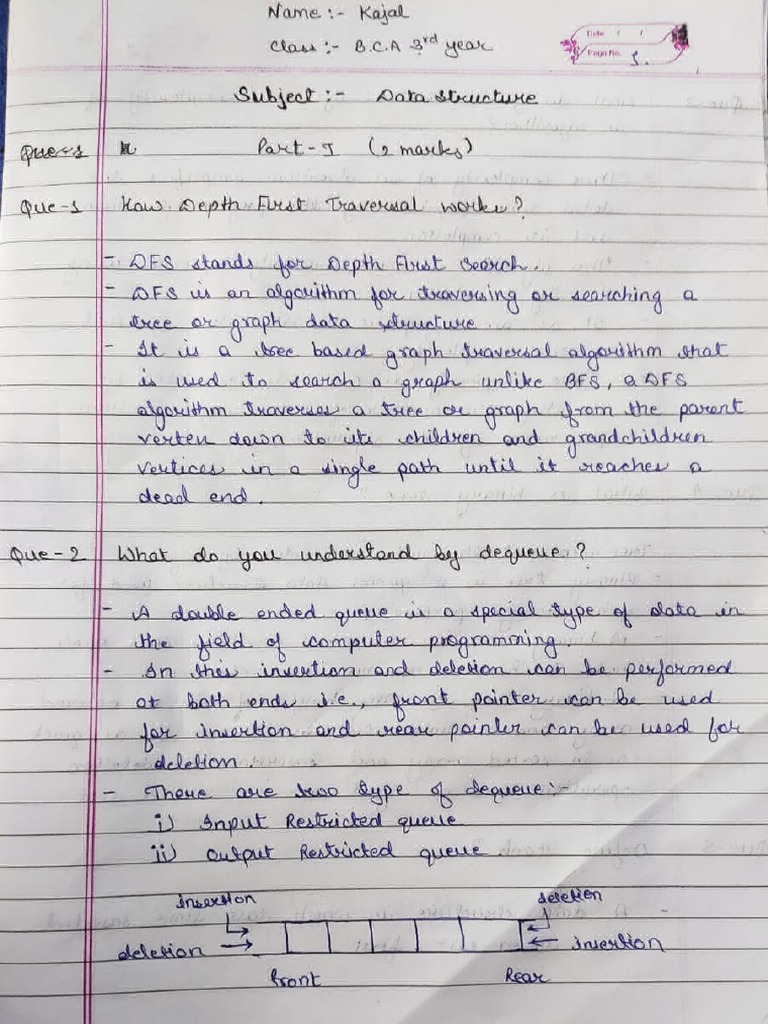 Name :- Kajal
Class :- B.C.A 3rd year
Date / /
Page No. 1.
Subject :- Data structure
Que-1 Part-I (2 marks)
Que-1 How Depth First Traversal works?
- DFS stands for Depth First Search.
- DFS is an algorithm for traversing or searching a
tree or graph data structure.
- It is a tree based graph traversal algorithm that
is used to search a graph unlike BFS, a DFS
algorithm traverses a tree or graph from the parent
verten down to its children and grandchildren
vertices in a single path until it reaches a
dead end.
Que-2 What do you understand by dequeue?
- A double ended queue is a special type of data in
the field of computer programming.
- In this insertion and deletion can be performed
at both ends i.e., front pointer can be used
for insertion and rear pointer can be used for
deletion.
- There are two type of dequeue:-
i) Input Restricted queue
ii) Output Restricted queue.
insertion deletion
deletion insertion
Front Rear